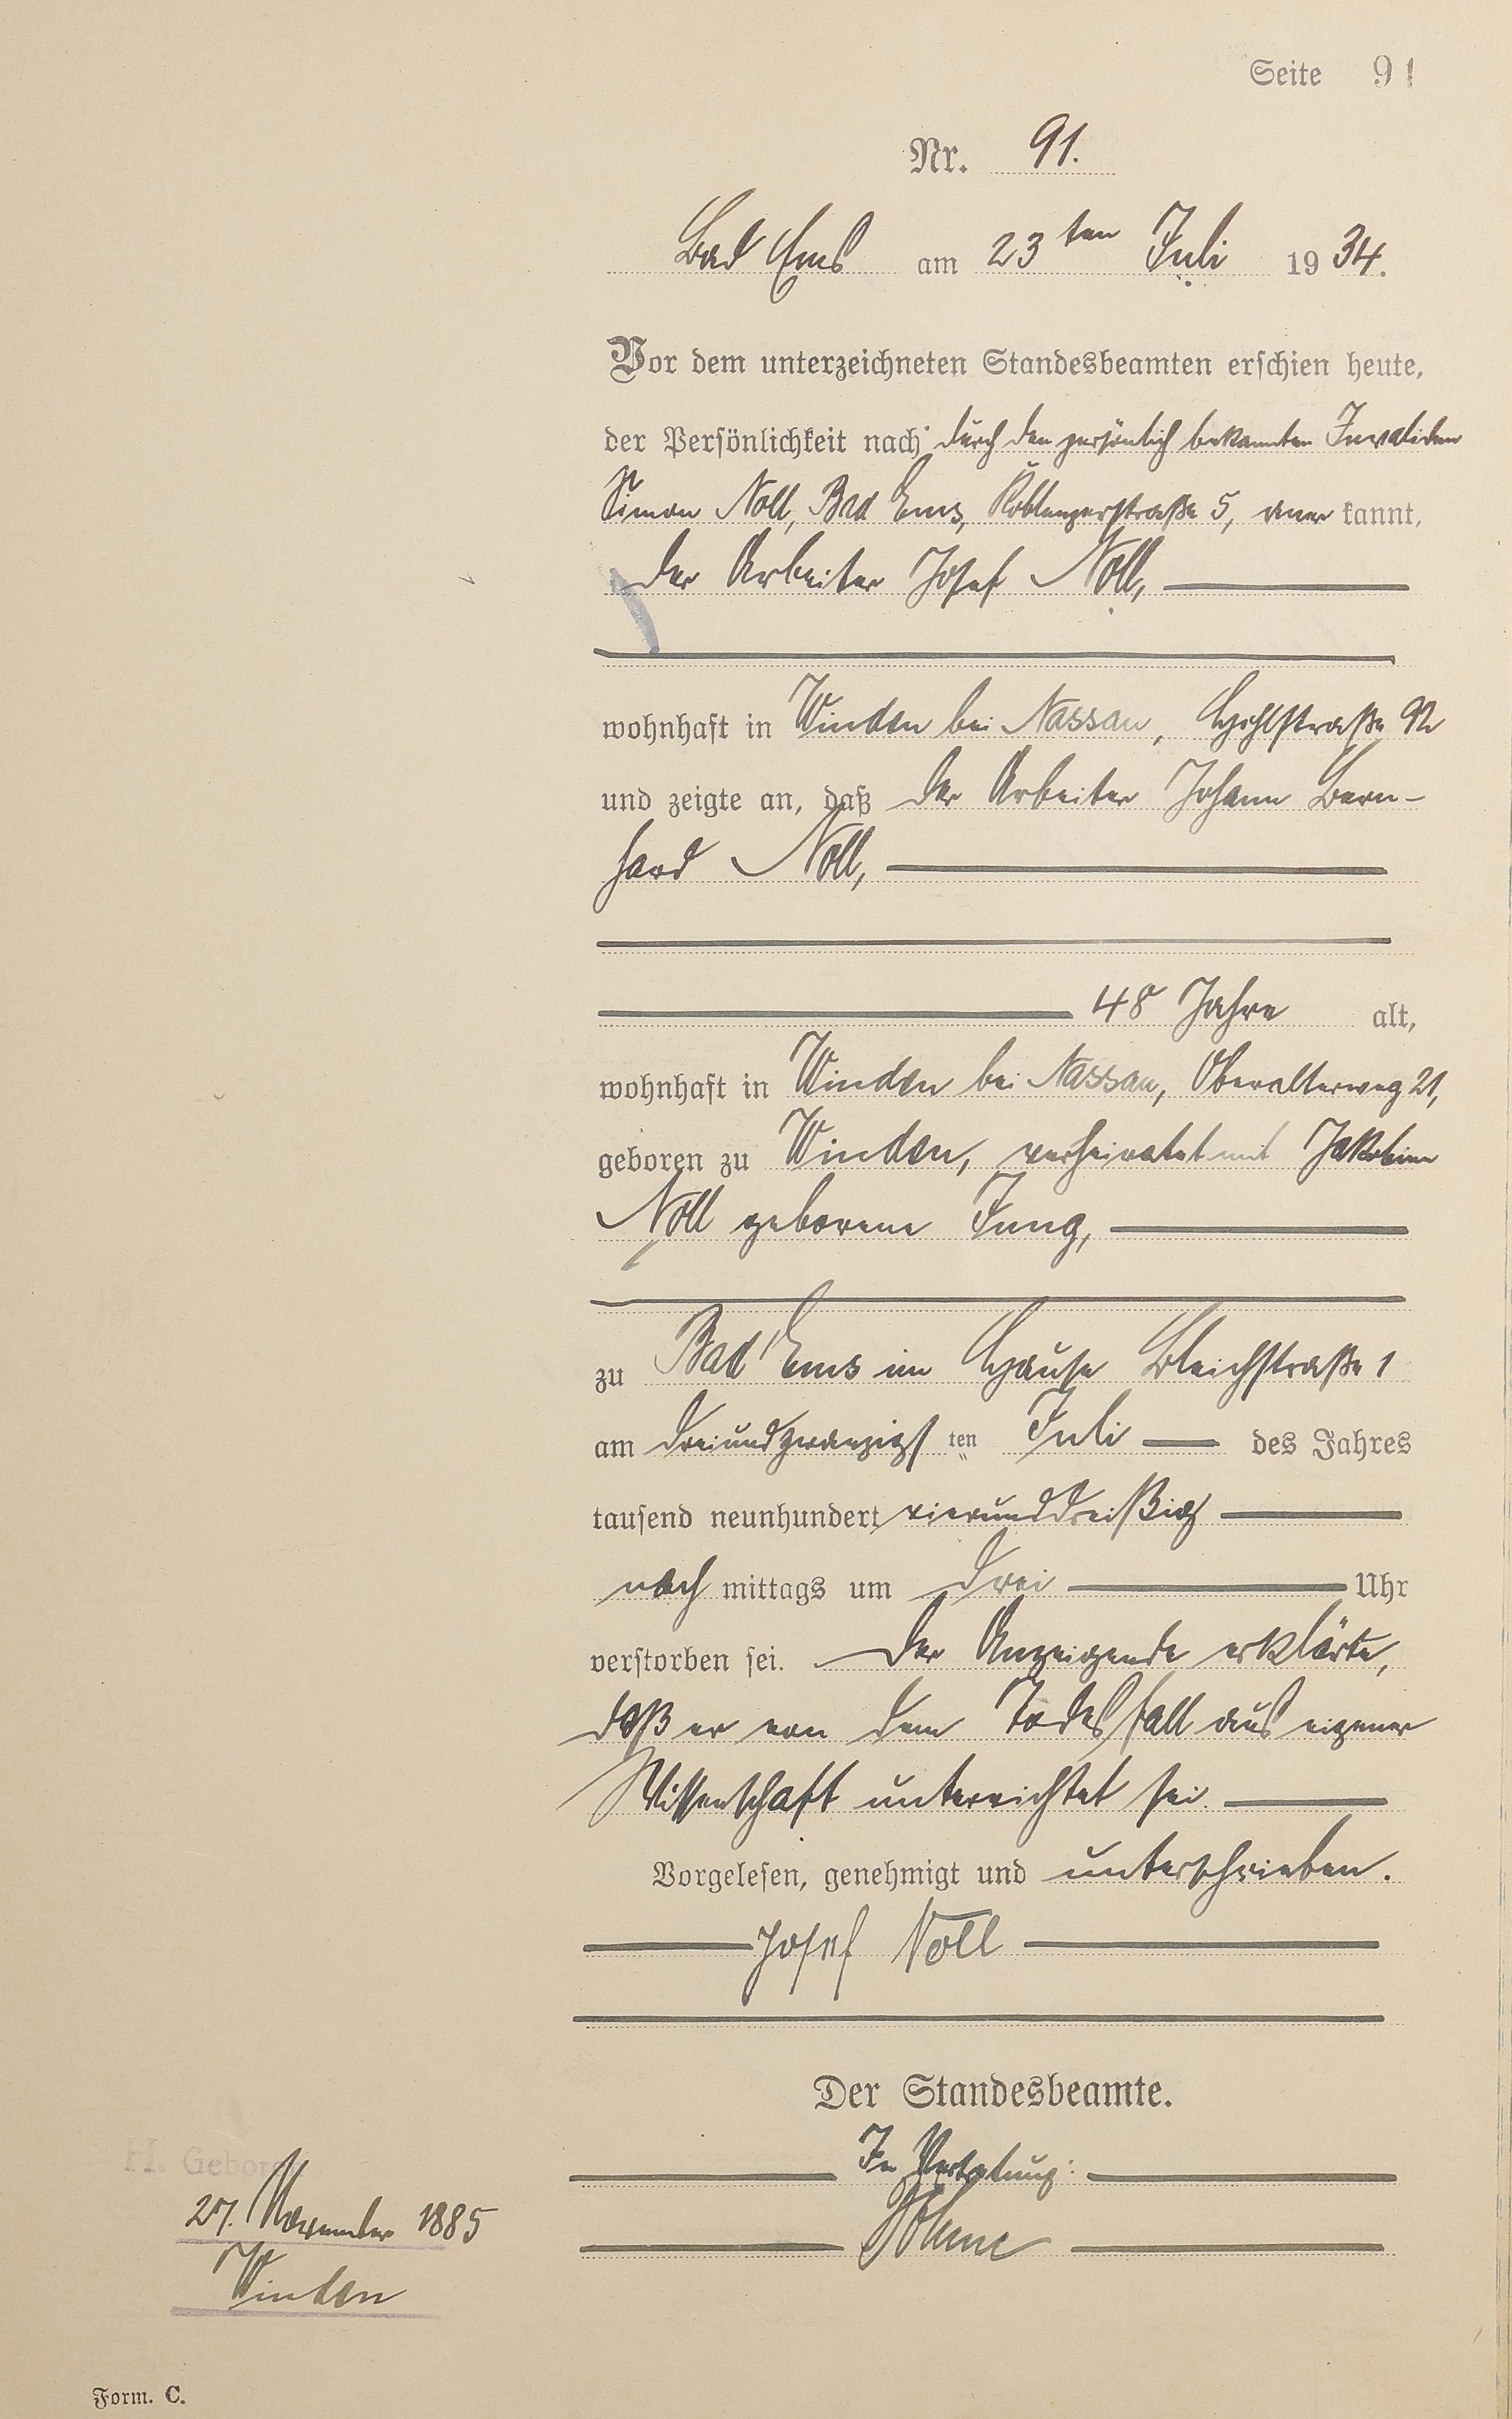 Seite 91
Nr. 91.
Bad Ems am 23ten Juli 1934.
Vor dem unterzeichneten Standesbeamten erschien heute,
der Persönlichkeit nach durch den persönlich bekannten Invaliden
Simon Noll, Bad Ems, Koblenzerstraße 5, aner kannt,
der Arbeiter Josef Noll,
wohnhaft in Winden bei Nassau, Hohlstraße 92
und zeigte an, daß der Arbeiter Johann Bern-
hard Noll,
48 Jahre alt,
wohnhaft in Winden bei Nassau, Oberalterweg 21,
geboren zu Winden, verheiratet mit Jakobine
Noll geborene Jung,
zu Bad Ems im Hause Bleichstraße 1
am dreiundzwanzigsten Juli des Jahres
tausend neunhundert vierunddreißig
nach mittags um drei Uhr
verstorben sei. Der Anzeigende erklärte,
daß er von dem Todesfall aus eigener
Wissenschaft unterrichtet sei.
Vorgelesen, genehmigt und unterschrieben.
Josef Noll
Der Standesbeamte.
In Vertretung:
H. Gebore
27. November 1885
Winden
Form. C.